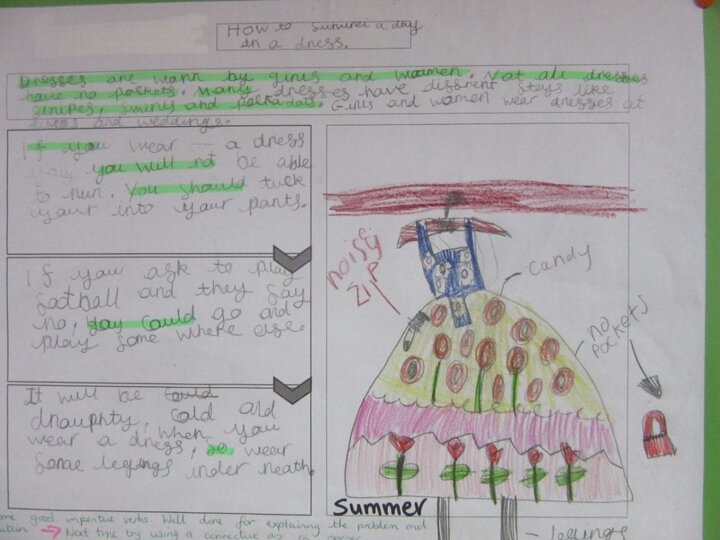 How to survive a day
in a dress.
Dresses are warn by girls and women. Not all dresses
have no pockets. Many dresses have different stays like
stripes, swirls and polkadots. Girls and women wear dresses at
and weddings.
If you wear a dress
you will not be able
to run. You should tuck
your into your pants.
If you ask to play
football and they say
no, you could go and
play some where else.
It will be could
dnaughty, cold and
wear a dress, when you
so wear
some legings under neath.
noisy
zip
candy
no
pockets
Summer
legings
some good impertive verbs. Well done for explaining the problem and
Next time try using a connective